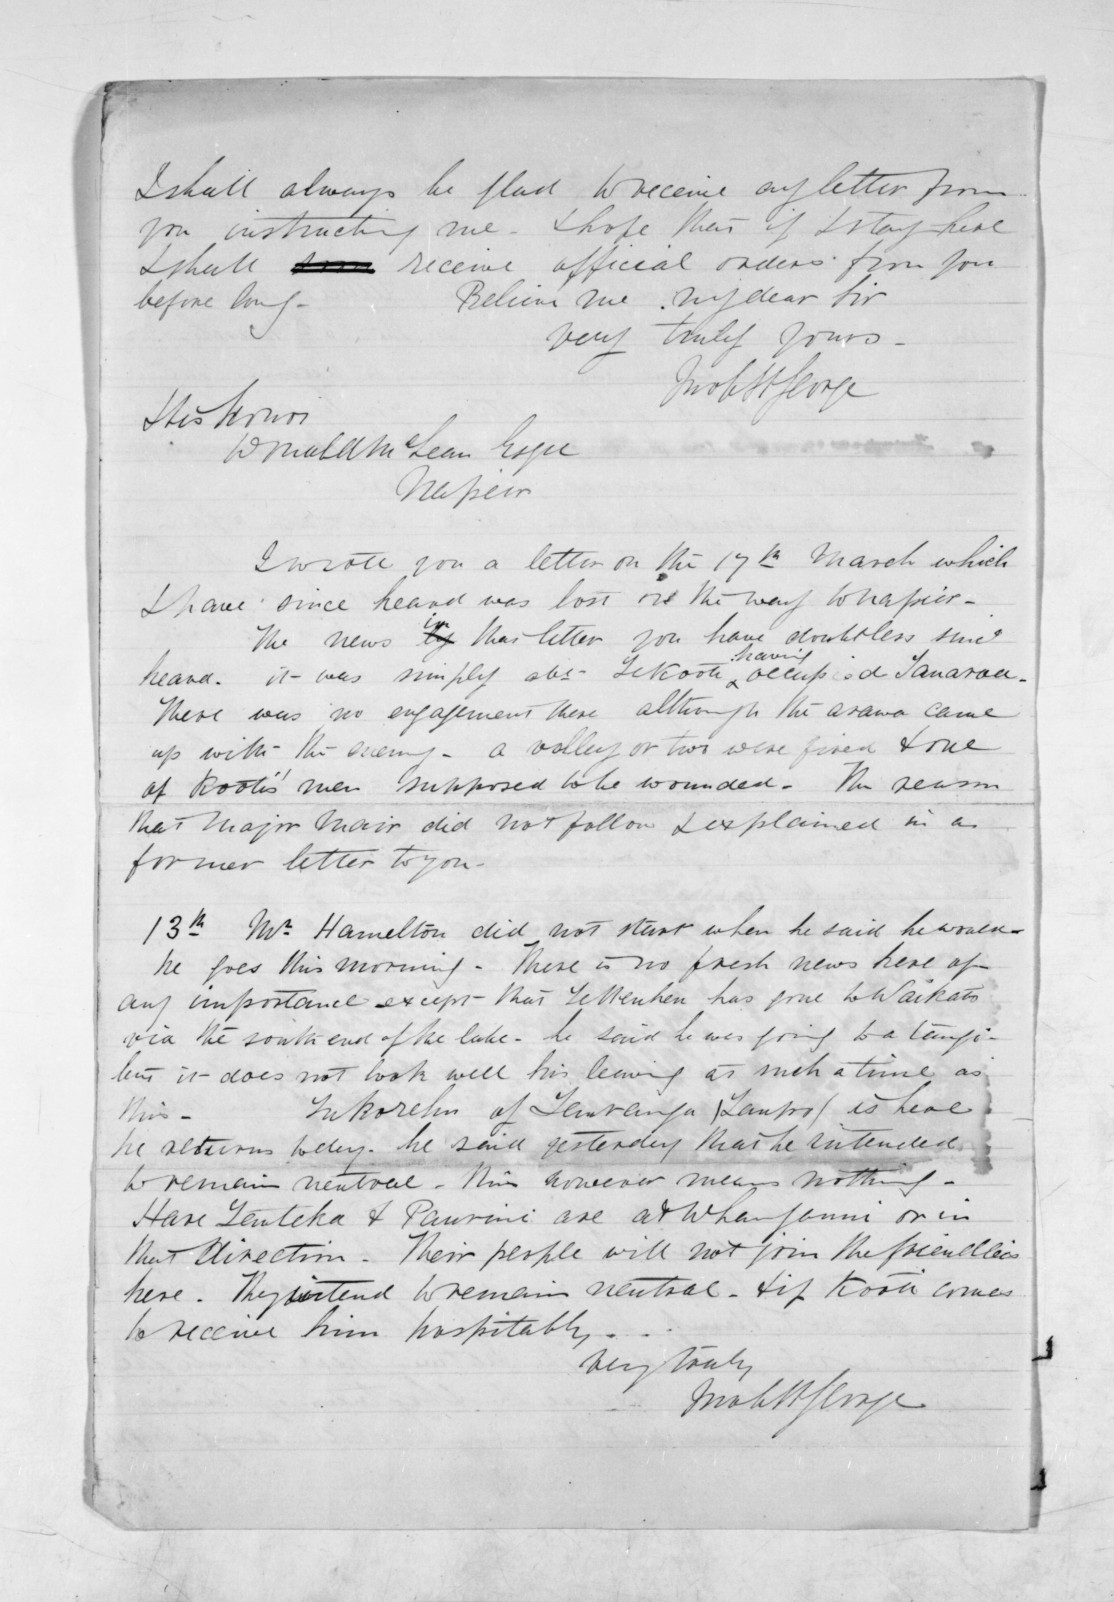 I shall always be glad to receive any letter from
you instructing me - I hope that if I stay here
I shall receive official orders from you
before long - Believe me my dear Sir
very truly yours -
St George
His Honor
Donald McLean Esqre
Napier
I wrote you a letter on the 17th March which
I have since heard was lost on the way to Napier -
The news in that letter you have doubtless since
heard. it was simply abt Te Kooti having occupied Tauaroa -
There was no engagement there although the arawa came
up with the enemy - a volley or two were fired & one
of Kooti's men supposed to be wounded - The reason
that Major Mair did not follow I explained in a
former letter to you -
13th Mr Hamelton did not start when he said he would -
he goes this morning - There is no fresh news here of
any importance except that has gone to Waikato
via the south end of the lake - he said he was going to a tangi -
but it does not look well his leaving at such a time as
this - of (Taupo) is here
he returns today - he said yesterday that he intended
to remain neutral - this however means nothing -
Hare Tauteka & Paurini are at Whanganui or in
that direction - Their people will not join the friendlies
here - They intend to remain neutral - & if Kooti comes
to receive him hospitably - - -
Very truly
St George